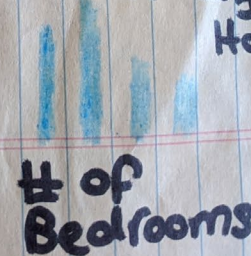 Ho
# of
Bedrooms